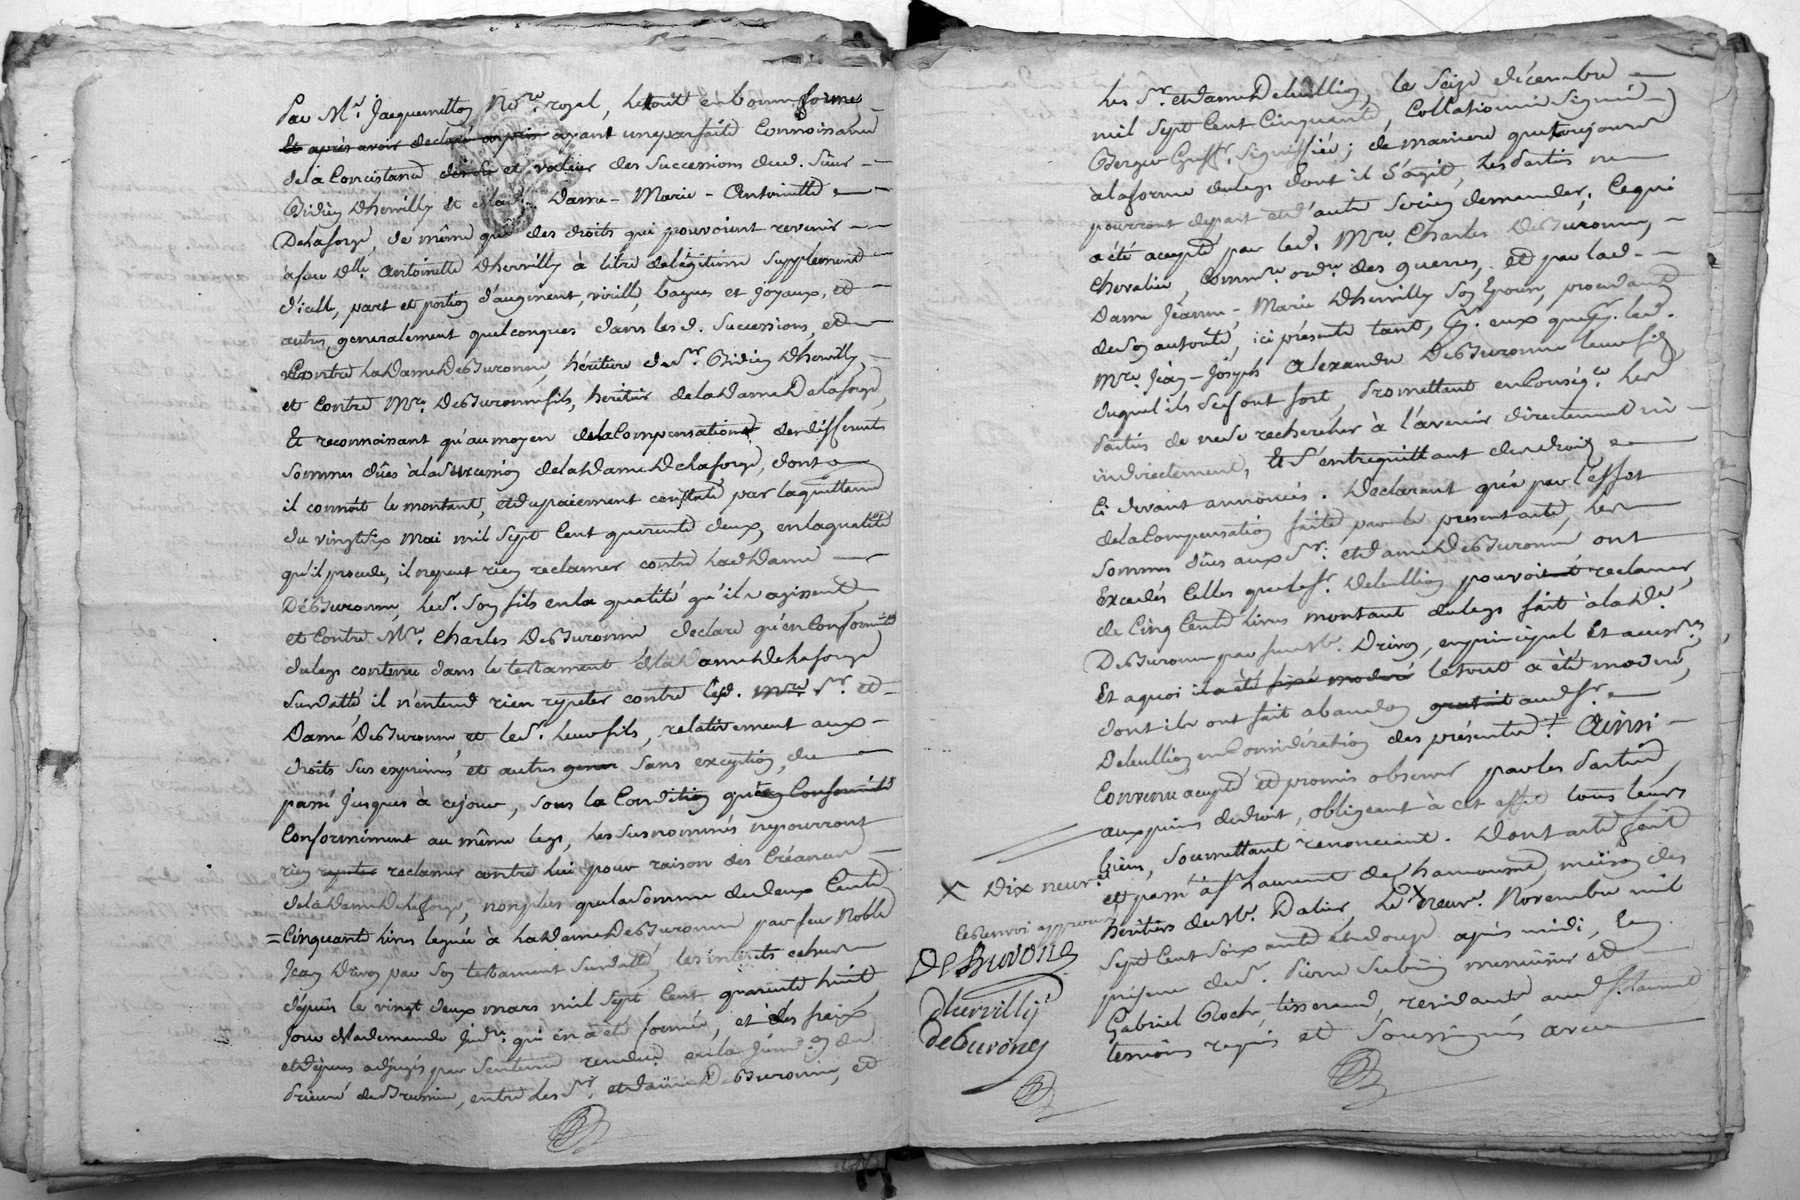 Par Mr. Jacquemetton No.re royal, le tout en bonne forme
Et après avoir declaré ayant une parfaite connoissance
de la Consistance et valeur des successions dud. Sieur
Didier Dhervilly et de lad. Dame Marie-Antoinette
Delaforge, de même que des droits qui pouvoient revenir
à feu dlle. Antoinette Dhervilly à titre de légitime supplement
d'icelle, part et portion d'augment, virille, bagues et joyaux, et
autres generalement quelconques dans les d. Successions, et
contre lad Dame DeBuronne, héritiere du Sr. Didier Dhervilly,
et contre Mre. DeBuronne fils, héritier de lad Dame Delaforge,
Et reconnoissant qu'au moyen de la Compensation des differents
sommes dûes à la Succession de lad Dame Delaforge, dont
il connoit le montant, et du paiement constaté par la quittance
du vingt six mai mil sept cent quarente deux, en la qualité
qu'il procede, il ne peut rien reclamer contre lad Dame
DeBuronne, led. Sr. son fils en la qualité qu'ils agissent
et contre Mre. Charles DeBuronne declare qu'en conformité
du legs contenu dans le testament de lad Dame Delaforge
susdatté il n'entend rien repeter contre lesd. mre. Sr. et
Dame DeBuronne, et led. leur fils, relativement aux
droits sus exprimés et autres sans exception, du
passé jusques à ce jour, sous la Condition qu'en Conformité
Conformément au même legs, les susnommés ne pourront
rien repeter reclamer contre lui pour raison des Créances
de lad Dame Delaforge, non plus que la somme de deux Cents
Cinquante livres leguée à lad Dame DeBuronne par feu Noble
Jean Drivon par son testament susdatté, les interets echus
depuis le vingt deux mars mil sept cent quarente huit,
jour de la demande judre. qui en a été formée, et des fraix
et dépens adjugés par sentence rendue en la jurid.on du
Prieuré de, entre les Sr. et dame DeBuronne, et
les Sr. et dame Deleullion, le seize décembre
mil sept cent cinquante, Collationné Signé
Berger Greff.r, signiffiée; de maniere que toujours
à la forme du legs dont il s'agit, les Parties ne
pourront de part et d'autre se rien demander; Ce qui
a été accepté par led. Mre. Charles DeBuronne,
chevalier, Comm.re ord.re des guerres, et par lad.
Dame Jeanne-Marie Dhervilly son Epouse, procedante
de son autorité, ici présente tant, P. eux que P. led.
Mre. Jean-Joseph Alexandre DeBuronne leur fils
duquel ils se font fort, Promettant en Conseq.ce les d
Parties de ne se rechercher à l'avenir directement ni
indirectement, Et s'entrequittant des droits
Ci devant annoncés. Declarant que par l'effet
de la Compensation faite par le présent acte, les
sommes dûes aux Sr. et dame DeBuronne ont
Excedés Celles que le Sr. Deleullion pouvoit reclamer
de Cinq Cents livres montant du legs fait à lad De.
DeBuronne par feu Mr. Drivon, en principal Et access.res
Et a quoi il a été fixé moderé le tout a été moderé,
dont ils ont fait abandon gratuit aud Sr.
Deleullion en Considération des présentes. Ainsi
Convenu accepté et promis observer par les Parties,
aux peines de droit, obligeant à cet effet tous leurs
biens, soumettant renonceant. Dont acte fait
et passé à St. Laurent de Chamousset, maison des
héritiers de Mr. Dalier, Le X neuv.e Novembre mil
sept Cent soixante et douze après midi, En
présence de Sr. Pierre Subrin menuisier et
Gabriel Roche, tisserand, residants aud St. Laurent
temoins requis et Soussignés avec
X Dix neuv.e
le Renvoi approuvé
DeBuronne
dhervilly
deburonne